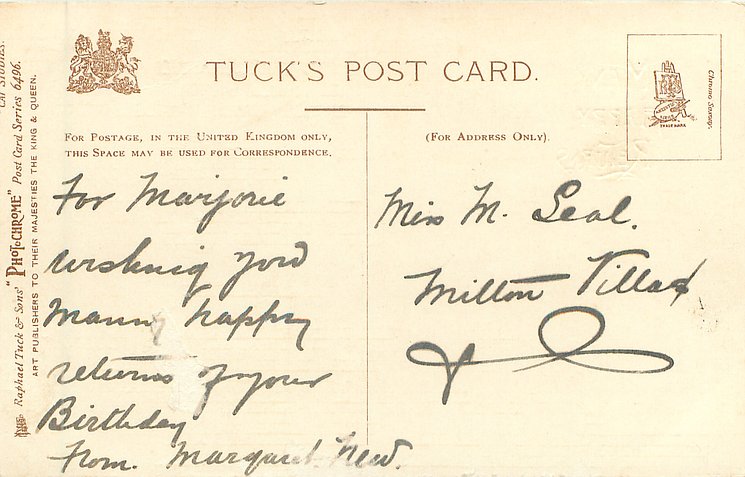 TUCK'S POST CARD.
FOR POSTAGE, IN THE UNITED KINGDOM ONLY,
THIS SPACE MAY BE USED FOR CORRESPONDENCE.
(FOR ADDRESS ONLY).
For Marjorie
wishing you
Manny happy
returns of your
Birthday
From. Margaret New.
Miss M. Seal.
Milton Villas
Raphael Tuck & Sons' "PHOTOCHROME" Post Card Series 6496.
ART PUBLISHERS TO THEIR MAJESTIES THE KING & QUEEN.
TRADE MARK